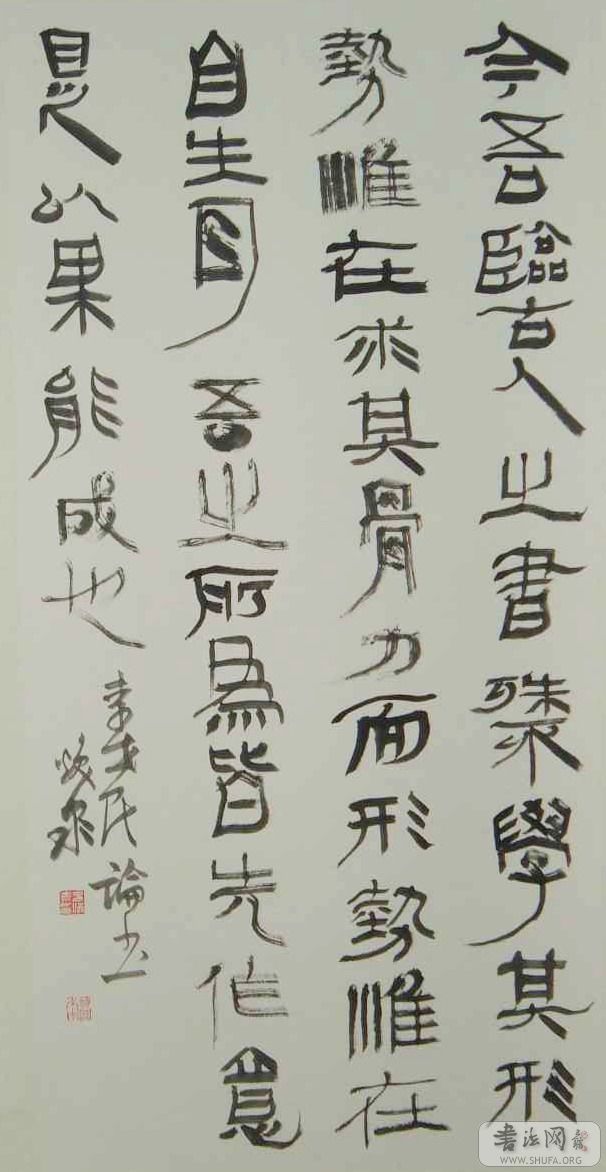 今吾臨古人之書殊不學其形
勢惟在求其骨力而形勢惟在
自生耳吾之所為皆先作意
是以果能成也
李世民論書
書法网
WWW.SHUFA.ORG